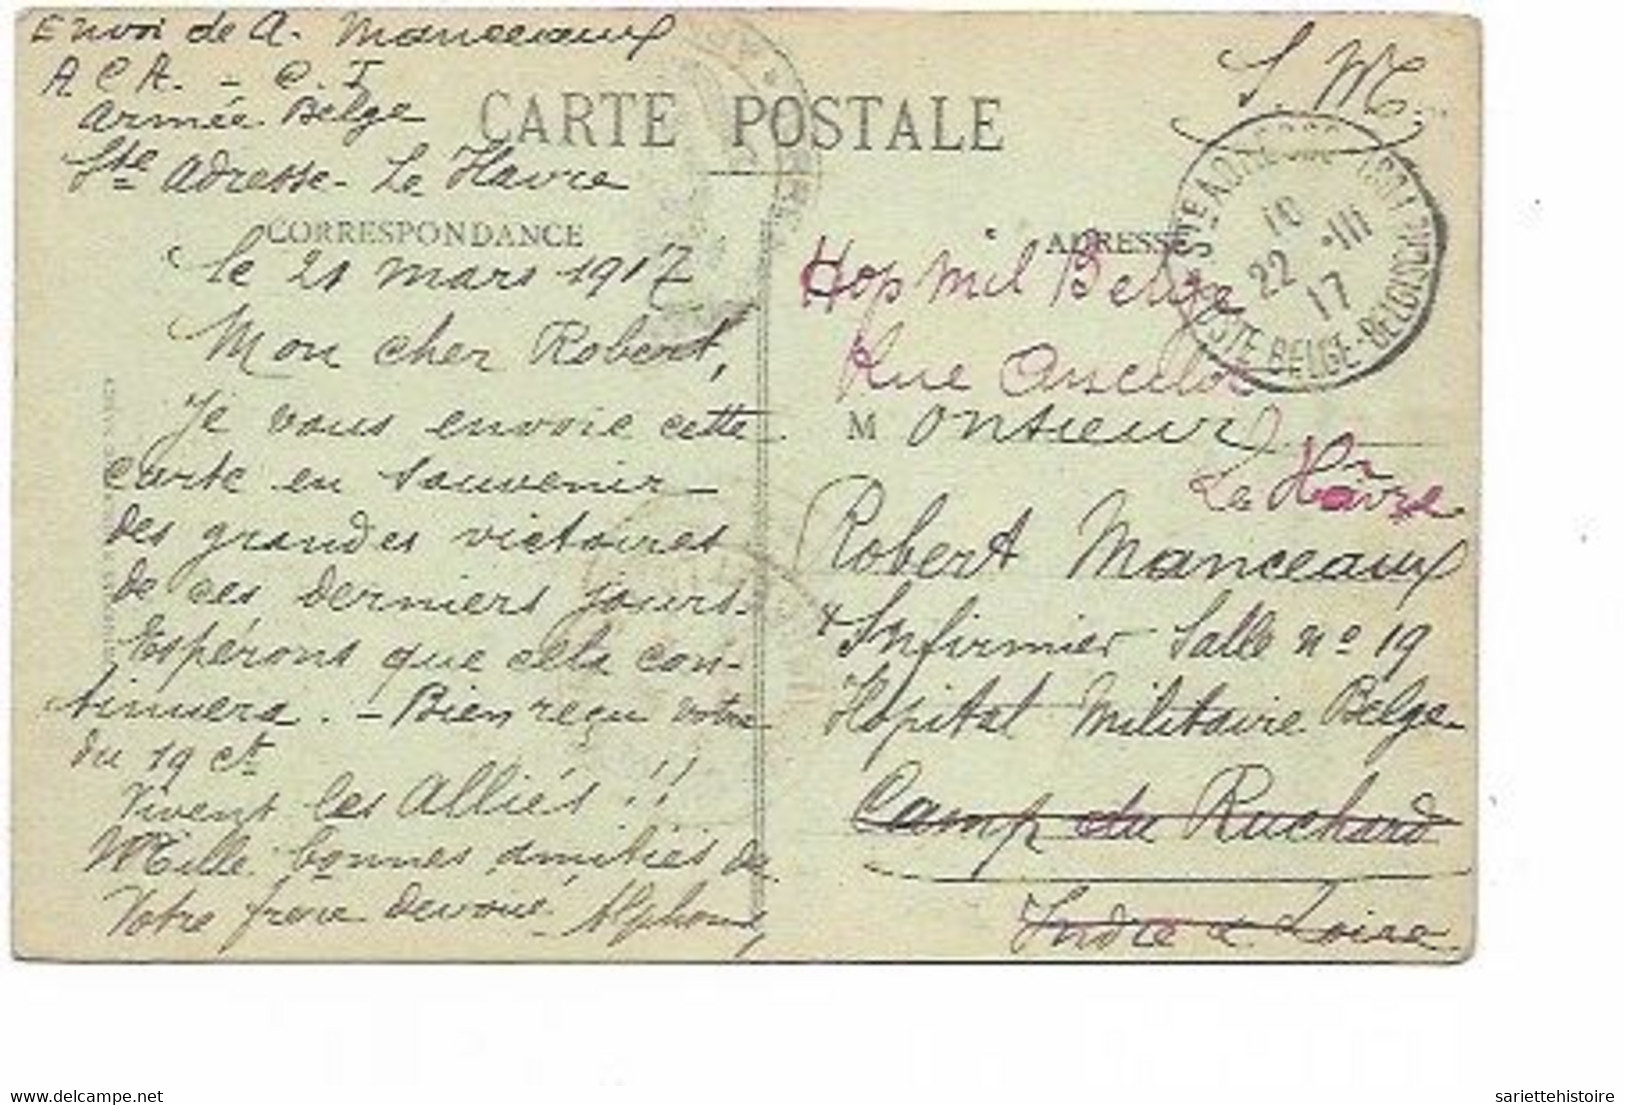 Envoi de A. Manceaux
A C A. - C. I
Armée Belge
Ste Adresse - Le Havre
S. M.
CARTE POSTALE
CORRESPONDANCE
ADRESSE
Le 21 mars 1917
Mon cher Robert,
Je vous envoie cette
carte en souvenir
des grandes victoires
de ces derniers jours.
Espérons que cela con-
tinuera. - Bien reçu votre
du 19 ct
Vivent les Alliés !!
Mille bonnes amitiés de
Votre frère dévoué. Alphonse
STE ADRESSE
POSTE BELGE-BELGISCHE POST
10
22 III
17
Hop Mil Belge
Rue Ancelot
Monsieur
Le Havre
Robert Manceaux
Infirmier Salle n° 19
Hopital Militaire Belge
Camp du Ruchard
Indre & Loire.
delcampe.net
sariettehistoire